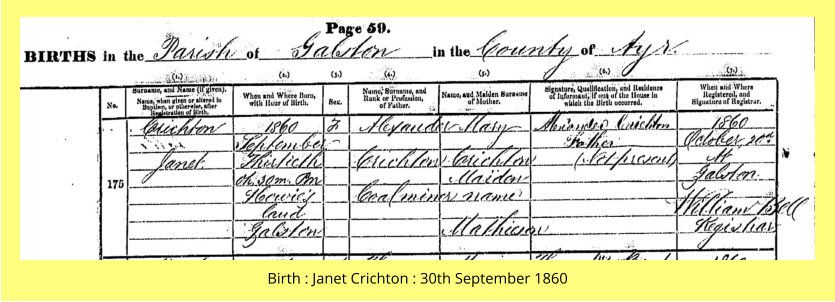 Page 59.
BIRTHS in the Parish of Galston in the County of Ayr.
(1.) (2.) (3.) (4.) (5.) (6.) (7.)
No.
Surname, and Name (if given).
Name, when given or altered in
Baptism, or otherwise, after
Registration of Birth.
When and Where Born,
with Hour of Birth.
Sex.
Name, Surname, and
Rank or Profession,
of Father.
Name, and Maiden Surname
of Mother.
Signature, Qualification, and Residence
of Informant, if out of the House in
which the Birth occurred.
When and Where
Registered, and
Signature of Registrar.
175
Crichton
Janet
1860
September
Thirtieth
30m. Pm
land
Galston
F
Alexander
Crichton
Coalminer
Mary
Crichton
Maiden
name
Mathieson
Alexander Crichton
Father
(Not present)
1860
October 20th
At
Galston
William Bell
Registrar
Birth : Janet Crichton : 30th September 1860